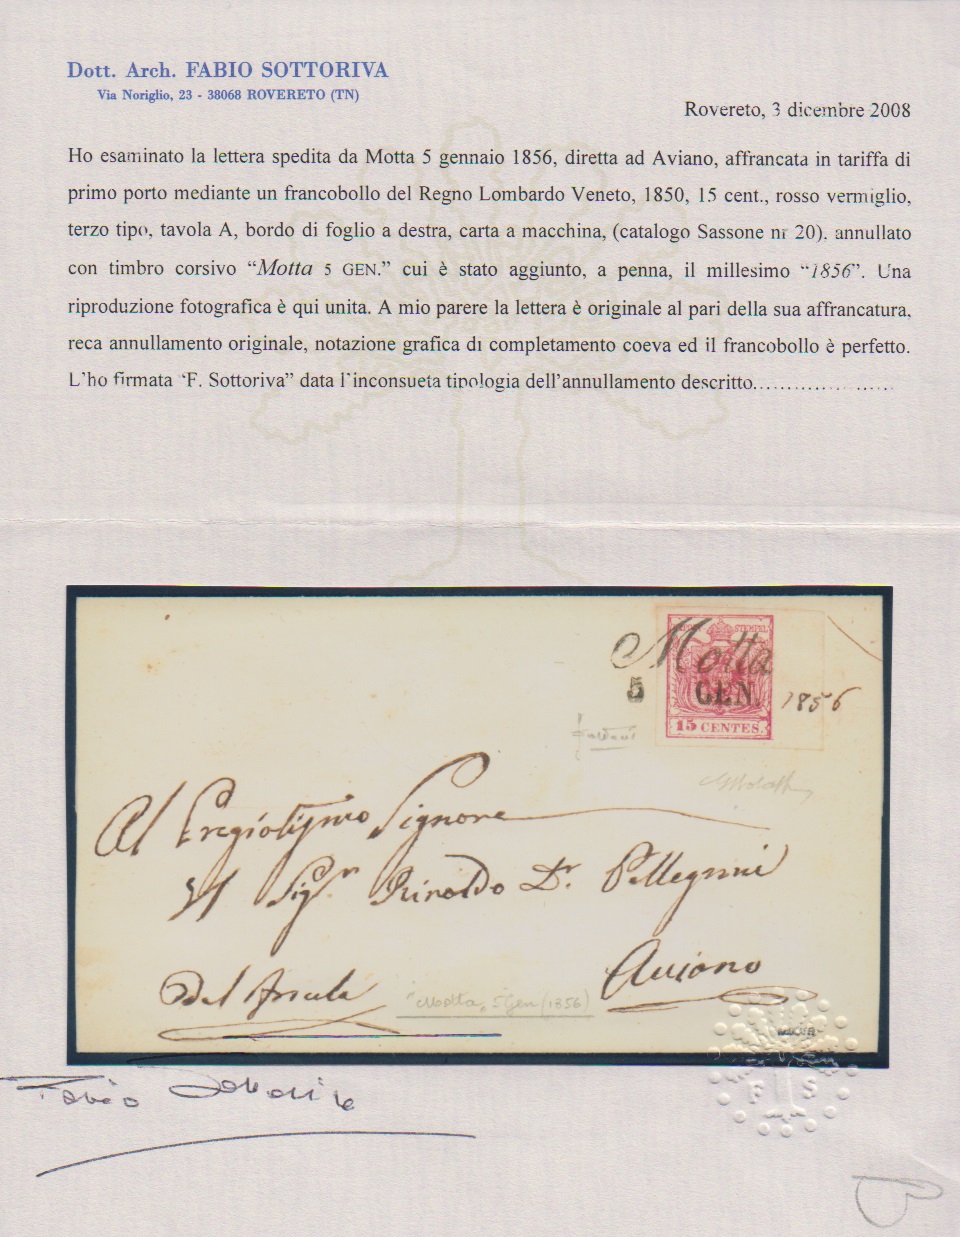 Dott. Arch. FABIO SOTTORIVA
Via Noriglio, 23 - 38068 ROVERETO (TN)
Rovereto, 3 dicembre 2008
Ho esaminato la lettera spedita da Motta 5 gennaio 1856, diretta ad Aviano, affrancata in tariffa di
primo porto mediante un francobollo del Regno Lombardo Veneto, 1850, 15 cent., rosso vermiglio,
terzo tipo, tavola A, bordo di foglio a destra, carta a macchina, (catalogo Sassone nr 20). annullato
con timbro corsivo “Motta 5 GEN.” cui è stato aggiunto, a penna, il millesimo “1856”. Una
riproduzione fotografica è qui unita. A mio parere la lettera è originale al pari della sua affrancatura,
reca annullamento originale, notazione grafica di completamento coeva ed il francobollo è perfetto.
L'ho firmata “F. Sottoriva” data l'inconsueta tipologia dell'annullamento descritto.....................
STEMPEL
Motta
5 GEN. 1856
15 CENTES.
Al Signore
Sigr Rinaldo Dr. Pellegrini
Aviano
"Motta, 5 Gen (1856)
Fabio Sottoriva
F S